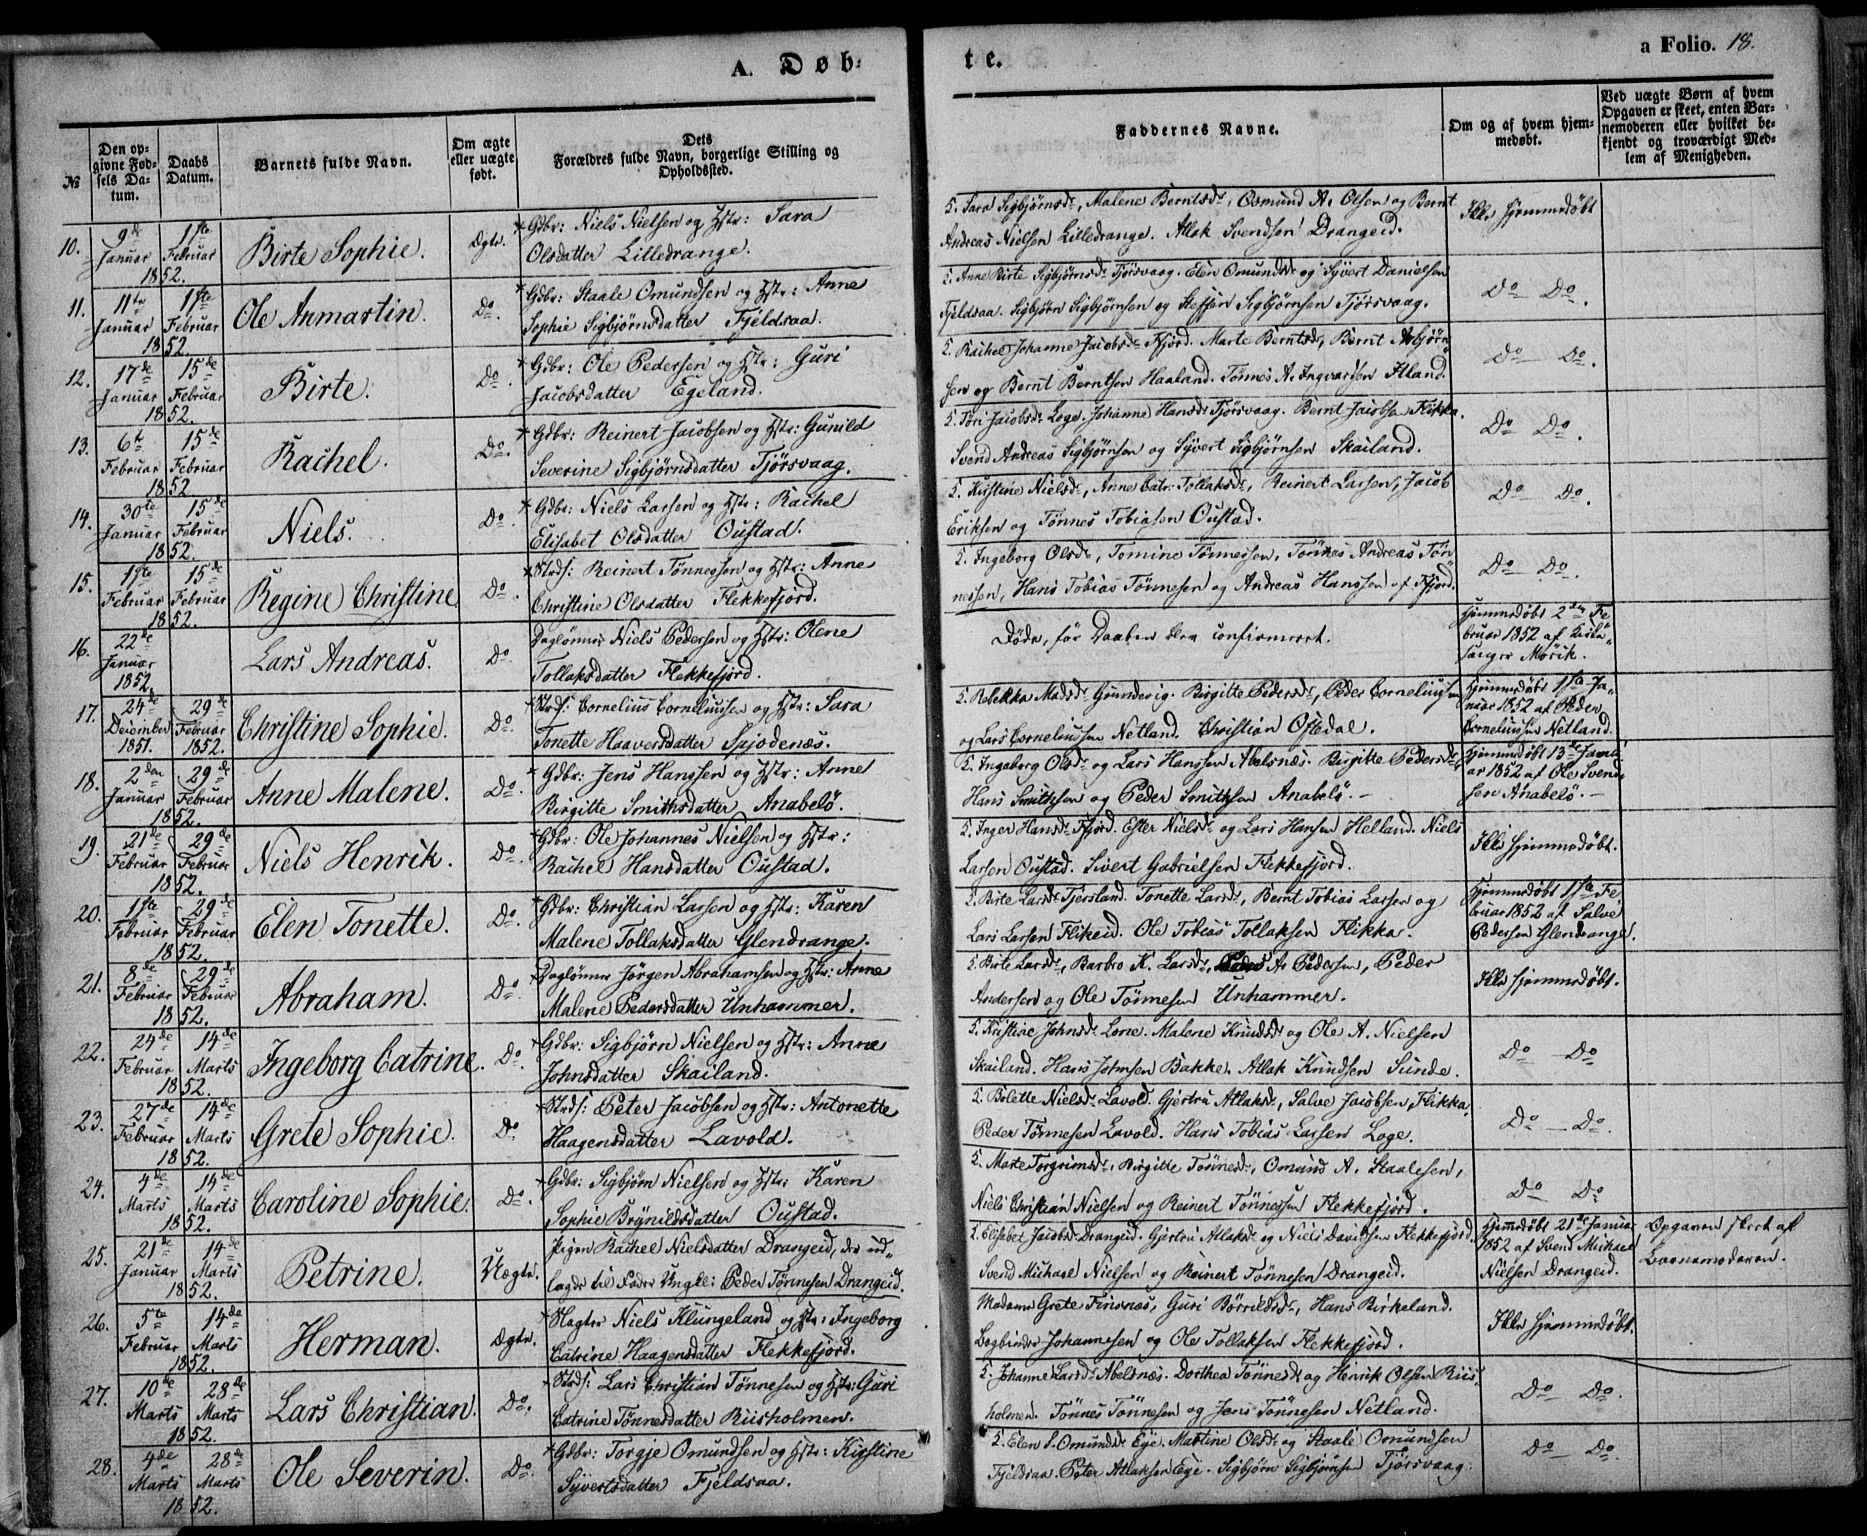 A. Døb-
te.
a Folio. 18.
№
Den op-
givne Fød-
sels Da-
tum.
Daabs
Datum.
Barnets fulde Navn.
Om ægte
eller uægte
født.
Dets
Forældres fulde Navn, borgerlige Stilling og
Opholdssted.
Faddernes Navne.
Om og af hvem hjem-
medøbt.
Ved uægte Børn af hvem
Opgaven er skeet, enten Bar-
nemoderen eller hvilket be-
kjendt og troværdigt Med-
lem af Menigheden.
10. 9de Januar 1852. 1ste Februar Birte Sophie. Ægte.
Gdbr: Niels Nielsen og Hstr: Sara
Olsdatter Lilledrange.
5. Sara Sigbjørnsdr, Malene Berntsdr, Osmund A. Olsen og Bernt
Andreas Nielsen Lilledrange. Atlak Svendsen Drangeid.
Ikke hjemmedøbt
11. 11te Januar 1852. 1ste Februar Ole Anmartin. Do.
Gdbr: Staale Omundsen og Hstr: Anne
Sophie Sigbjørnsdatter Fjeldsaa.
5. Anne Birte Sigbjørnsdr Tjørsvaag. Elen Omundsdr og Syvert Danielsen
Fjeldsaa. Sigbjørn Sigbjørnsen og Steffen Sigbjørnsen Tjørsvaag.
Do Do.
12. 17de Januar 1852. 15de Februar Birte. Do.
Gdbr: Ole Pedersen og Hstr: Guri
Jacobsdatter Egeland.
5. Rachel Johanne Jacobsdr Fjord. Marte Berntsdr, Bernt Asbjørn-
sen og Bernt Berntsen Haaland. Tønnes A. Ingvardsen Hland.
Do Do.
13. 6te Februar 1852 15de Februar Rachel. Do.
Gdbr: Reinert Jacobsen og Hstr: Gunild
Severine Sigbjørnsdatter Tjørsvaag.
5. Tøri Jacobsdr Loge. Johanne Hansdr Tjørsvaag. Bernt Jacobsen Flikka.
Svend Andreas Sigbjørnsen og Syvert Sigbjørnsen Skailand.
Do Do.
14. 30te Januar 1852. 15de Februar Niels. Do.
Gdbr: Niels Larsen og Hstr: Rachel
Elisabet Olsdatter Oustad.
5. Kirstine Nielsdr, Anne Catr. Tollaksdr, Reinert Larsen, Jacob
Eriksen og Tønnes Tobiasen Oustad.
Do Do.
15. 1ste Februar 1852. 15de Februar Regine Christine Do.
Strds: Reinert Tønnessen og Hstr: Anne
Christine Olsdatter Flekkefjord.
5. Ingeborg Olsdr, Tomine Tønnessen, Tønnes Andreas Tøn-
nessen, Hans Tobias Tønnesen og Andreas Hanssen af Fjord.
Do Do.
16. 22de Januar 1852. Lars Andreas. Do
Daglønner Niels Pedersen og Hstr: Olene
Tollaksdatter Flekkefjord.
Døde, før Daaben blev confirmeret.
Hjemmedøbt 2den Fe-
bruar 1852 af Kirke-
sanger Mörik.
17. 24de December 1851. 29de Februar 1852. Christine Sophie. Do
Strds: Cornelius Corneliussen og Hstr: Sara
Tonette Haaversdatter Spjodenæs.
5. Rebekka Madsdr Grundevig. Birgitte Pedersdr, Peder Corneliussen
og Lars Corneliussen Netland. Christian Oftedal.
Hjemmedøbt 1ste Ja-
nuar 1852 af Peder
Corneliussen Netland.
18. 2den Januar 1852. 29de Februar Anne Malene. Do.
Gdbr: Jens Hanssen og Hstr: Anne
Birgitte Smithsdatter Anabelö.
5. Ingeborg Olsdr og Lars Hanssen Abelsnæs. Birgitte Pedersdr,
Hans Smithsen og Peder Smithsen Anabelö.
Hjemmedøbt 13de Janu-
ar 1852 af Ole Svend-
sen Anabelö.
19. 21de Februar 1852. 29de Februar Niels Henrik. Do.
Gdbr: Ole Johannes Nielsen og Hstr:
Rachel Hansdatter Oustad.
5. Inger Hansdr Fjord. Ester Nielsdr og Lars Hansen Helland. Niels
Larsen Oustad. Sivert Gabrielsen Flekkefjord.
Ikke hjemmedøbt.
20. 1ste Februar 1852. 29de Februar Elen Tonette. Do.
Gdbr: Christian Larsen og Hstr: Karen
Malene Tollaksdatter Glendrange.
5. Birte Larsdr Tjersland. Tonette Larsdr, Bernt Tobias Larsen og
Lars Larsen Flikeid. Ole Tobias Tollaksen Flikka.
Hjemmedøbt 1ste Fe-
bruar 1852 af Salve
Pedersen Glendrange.
21. 8de Februar 1852. 29de Februar Abraham. Do.
Daglønner Jørgen Abrahamsen og Hstr: Anne
Malene Pedersdatter Unhammer.
5. Birte Larsdr, Barbro K. Larsdr, A. Pedersen, Peder
Andersen og Ole Tønnesen Unhammer.
Ikke hjemmedøbt.
22. 24de Februar 1852. 14de Marts Ingeborg Catrine. Do.
Gdbr: Sigbjørn Nielsen og Hstr: Anne
Johnsdatter Skailand.
5. Kristine Johnsdr Lone. Malene Knudsdr og Ole A. Nielsen
Skailand. Hans Johnsen Bakke. Atlak Knudsen Sunde.
Do Do
23. 27de Februar 1852. 14de Marts Grete Sophie. Do
Strds: Peter Jacobsen og Hstr: Antonette
Haagensdatter Lavold.
5. Bolette Nielsdr Lavold. Gjertru Atlaksdr, Salve Jacobsen Flikka,
Peder Tønnesen Lavold. Hans Tobias Larsen Loge.
Do Do.
24. 4de Marts 1852. 14de Marts Caroline Sophie. Do.
Gdbr: Sigbjørn Nielsen og Hstr: Karen
Sophie Brynildsdatter Oustad.
5. Marte Torgrimsdr, Birgitte Tønnesdr, Omund A. Staalesen,
Niels Christian Nielsen og Reinert Tønnessen Flekkefjord.
Do Do
25. 21de Januar 1852. 14de Marts Petrine. Uægte.
Pigen Rachel Nielsdatter Drangeid, der ud-
lagde til Fader Ungk: Peder Tønnesen Drangeid.
5. Elisabet Jacobsdr Drangeid. Gjertru Atlaksdr og Niels Davidsen Flekkefjord.
Svend Michael Nielsen og Reinert Tönnesen Drangeid.
Hjemmedøbt 21de Januar
1852 af Svend Michael
Nielsen Drangeid.
Opgaven skeet af
Barnemoderen.
26. 5te Februar 1852. 14de Marts Herman. Ægte.
Slagter Niels Klungeland og Hstr: Ingeborg
Catrine Haagensdatter Flekkefjord.
Madame Grete Finsnes, Guri Børrildsdr, Hans Birkeland.
Bogbinder Johannesen og Ole Tollaksen Flekkefjord.
Ikke hjemmedøbt.
27. 10de Marts 1852. 28de Marts Lars Christian. Do.
Strds: Lars Christian Tønnesen og Hstr: Guri
Catrine Tønnesdatter Riisholmen.
5. Johanne Larsdr Abelsnæs. Dorthea Tønnesdr og Henrik Olsen Riis-
holmen. Tønnes Tønnesen og Jens Tønnesen Netland.
Do Do.
28. 4de Marts 1852. 28de Marts Ole Severin. Do.
Gdbr: Torgje Omundsen og Hstr: Kirstine
Syvertsdatter Fjeldsaa.
5. Elen S. Omundsdr Eye. Martine Olsdr og Staale Omundsen
Fjeldsaa. Peter Atlaksen Ege. Sigbjørn Sigbjørnsen Tjørsvaag.
Do Do.